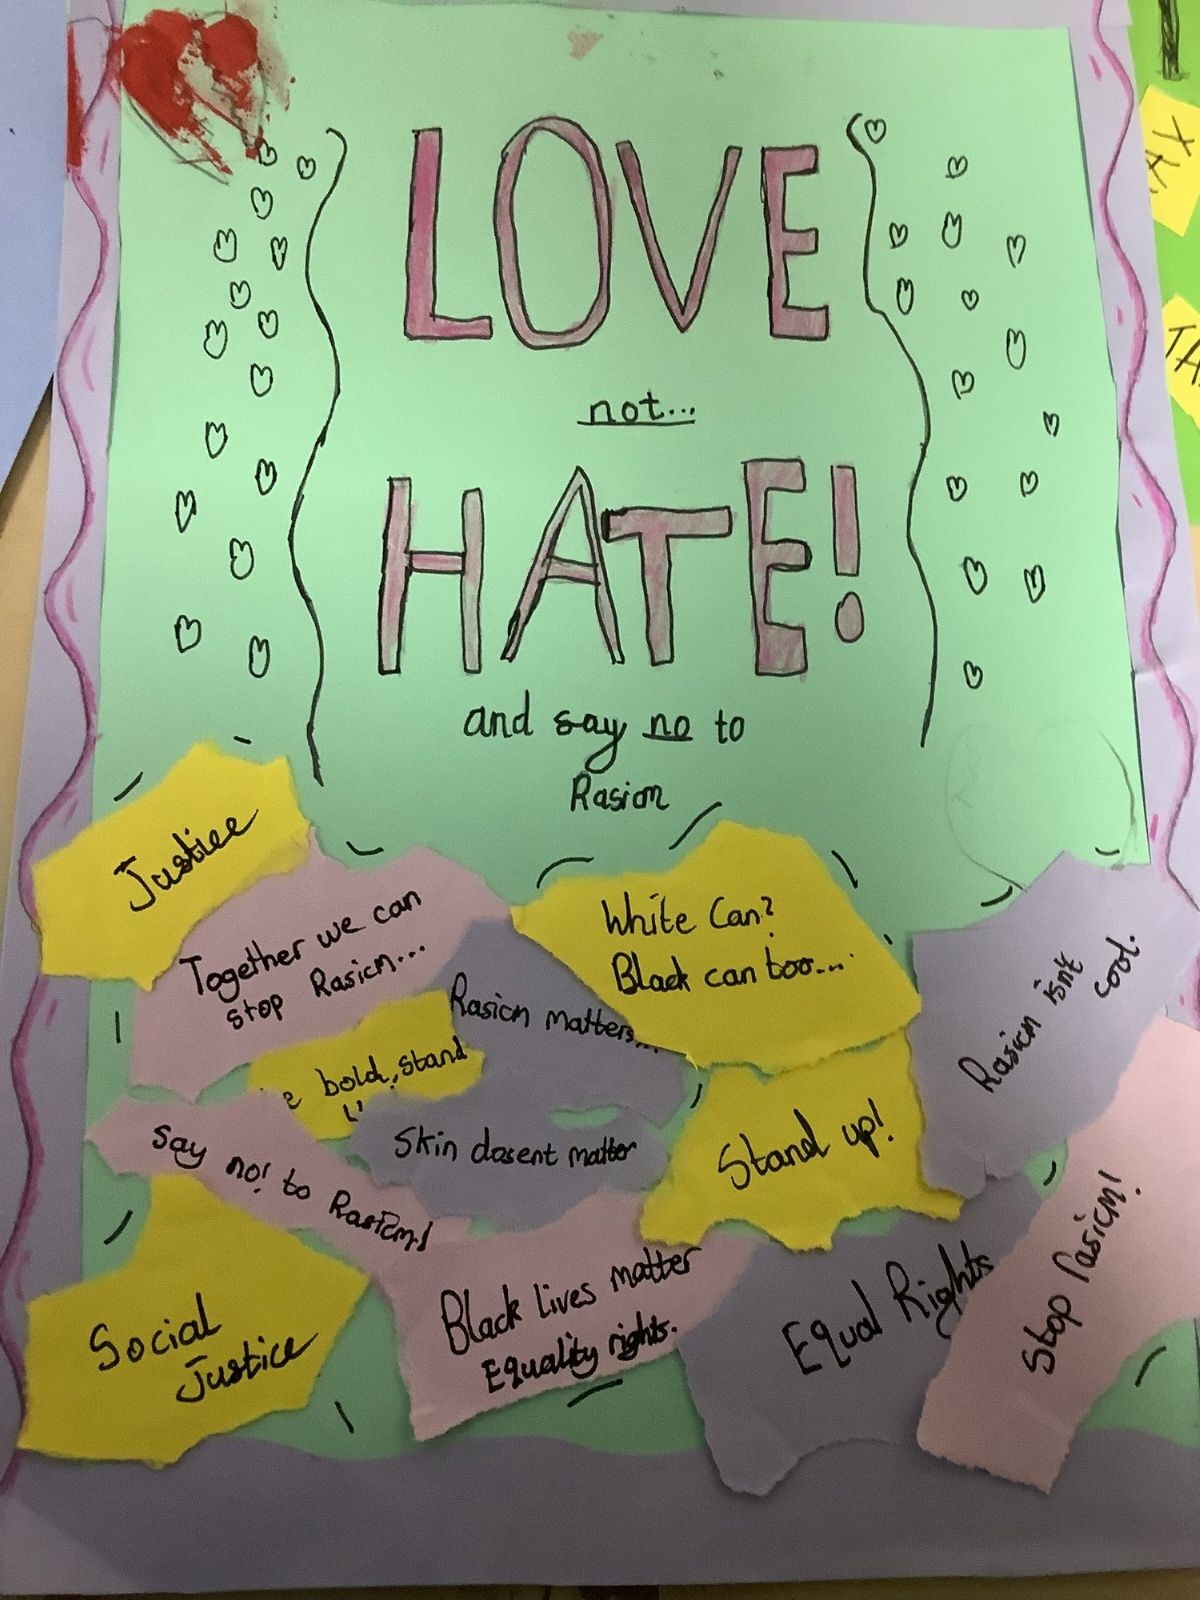 LOVE
not...
HATE!
and say no to
Rasion
Justice
Together we can
stop Rasicm...
White Can?
Black can too....
Rasicm matters...
Rasicm isnt
cool.
bold, stand
Skin dosent matter
Stand up!
Say no! to Rasicm!
Social
Justice
Black lives matter
Equality rights.
Equal Rights
Stop Rasicm!